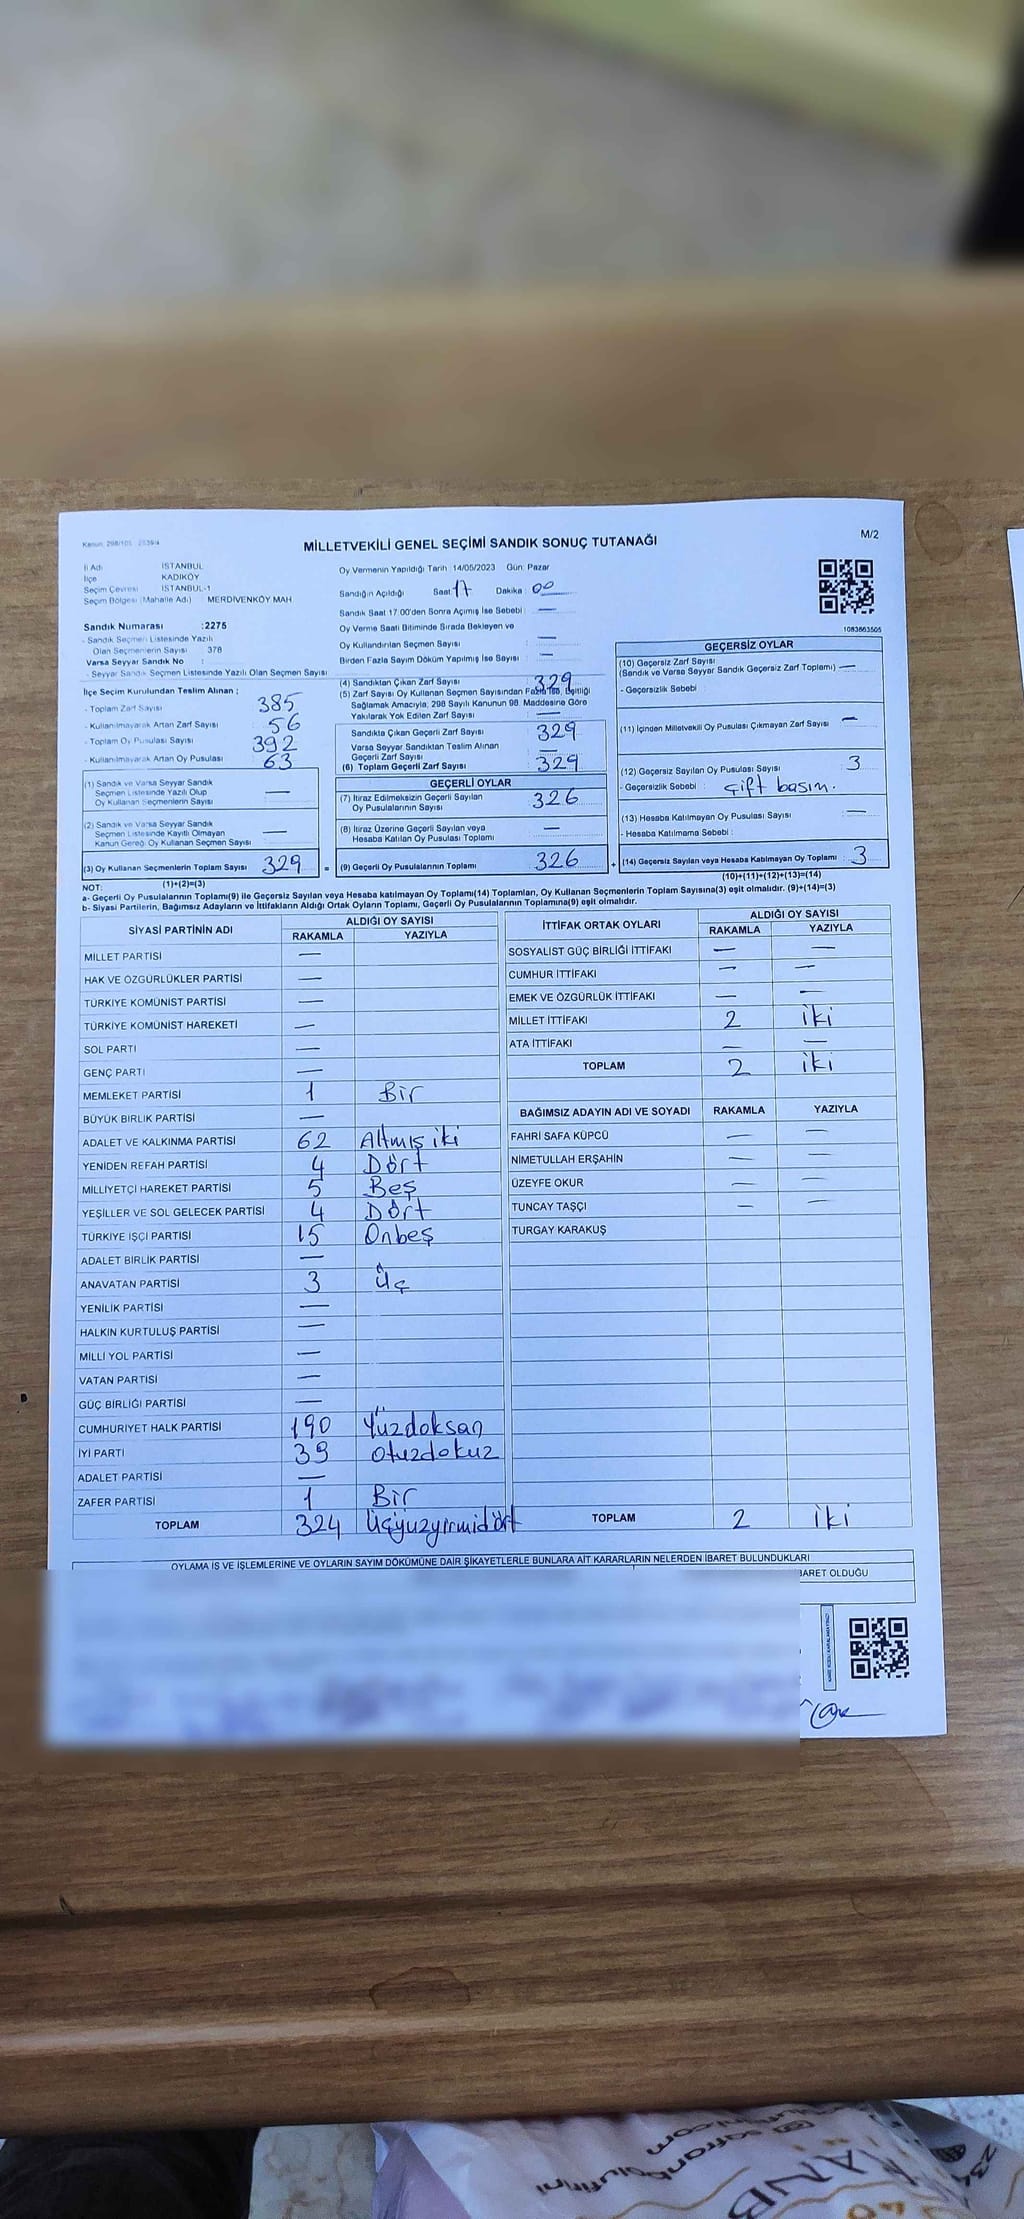 Kanun: 298/105 - 2839/4
MİLLETVEKİLİ GENEL SEÇİMİ SANDIK SONUÇ TUTANAĞI
M/2
İl Adı İSTANBUL
İlçe KADIKÖY
Seçim Çevresi İSTANBUL-1
Seçim Bölgesi (Mahalle Adı) MERDİVENKÖY MAH
Oy Vermenin Yapıldığı Tarih :14/05/2023 Gün: Pazar
Sandığın Açıldığı Saat 17 Dakika 00
Sandık Saat 17:00'den Sonra Açımış İse Sebebi : —
Oy Verme Saati Bitiminde Sırada Bekleyen ve
Oy Kullandırılan Seçmen Sayısı : —
Birden Fazla Sayım Döküm Yapılmış İse Sayısı : —
1083863505
Sandık Numarası :2275
- Sandık Seçmen Listesinde Yazılı
Olan Seçmenlerin Sayısı 378
Varsa Seyyar Sandık No :
- Seyyar Sandık Seçmen Listesinde Yazılı Olan Seçmen Sayısı
İlçe Seçim Kurulundan Teslim Alınan ;
- Toplam Zarf Sayısı 385
- Kullanılmayarak Artan Zarf Sayısı 56
- Toplam Oy Pusulası Sayısı 392
- Kullanılmayarak Artan Oy Pusulası 63
(1) Sandık ve Varsa Seyyar Sandık
Seçmen Listesinde Yazılı Olup
Oy Kullanan Seçmenlerin Sayısı —
(2) Sandık ve Varsa Seyyar Sandık
Seçmen Listesinde Kayıtlı Olmayan
Kanun Gereği Oy Kullanan Seçmen Sayısı —
(3) Oy Kullanan Seçmenlerin Toplam Sayısı 329 =
(1)+(2)=(3)
(4) Sandıktan Çıkan Zarf Sayısı 329
(5) Zarf Sayısı Oy Kullanan Seçmen Sayısından Fazla İse, Eşitliği
Sağlamak Amacıyla, 298 Sayılı Kanunun 98. Maddesine Göre
Yakılarak Yok Edilen Zarf Sayısı : —
Sandıkta Çıkan Geçerli Zarf Sayısı 329
Varsa Seyyar Sandıktan Teslim Alınan
Geçerli Zarf Sayısı —
(6) Toplam Geçerli Zarf Sayısı 329
GEÇERLİ OYLAR
(7) İtiraz Edilmeksizin Geçerli Sayılan
Oy Pusulalarının Sayısı 326
(8) İtiraz Üzerine Geçerli Sayılan veya
Hesaba Katılan Oy Pusulası Toplamı —
(9) Geçerli Oy Pusulalarının Toplamı 326 +
GEÇERSİZ OYLAR
(10) Geçersiz Zarf Sayısı
(Sandık ve Varsa Seyyar Sandık Geçersiz Zarf Toplamı) —
- Geçersizlik Sebebi :
(11) İçinden Milletvekili Oy Pusulası Çıkmayan Zarf Sayısı —
(12) Geçersiz Sayılan Oy Pusulası Sayısı : 3
- Geçersizlik Sebebi : çift basım.
(13) Hesaba Katılmayan Oy Pusulası Sayısı —
- Hesaba Katılmama Sebebi :
(14) Geçersiz Sayılan veya Hesaba Katılmayan Oy Toplamı : 3
(10)+(11)+(12)+(13)=(14)
NOT:
a- Geçerli Oy Pusulalarının Toplamı(9) ile Geçersiz Sayılan veya Hesaba katılmayan Oy Toplamı(14) Toplamları, Oy Kullanan Seçmenlerin Toplam Sayısına(3) eşit olmalıdır. (9)+(14)=(3)
b- Siyasi Partilerin, Bağımsız Adayların ve İttifakların Aldığı Ortak Oyların Toplamı, Geçerli Oy Pusulalarının Toplamına(9) eşit olmalıdır.
SİYASİ PARTİNİN ADI ALDIĞI OY SAYISI
RAKAMLA YAZIYLA
MİLLET PARTİSİ —
HAK VE ÖZGÜRLÜKLER PARTİSİ —
TÜRKİYE KOMÜNİST PARTİSİ —
TÜRKİYE KOMÜNİST HAREKETİ —
SOL PARTİ —
GENÇ PARTİ —
MEMLEKET PARTİSİ 1 Bir
BÜYÜK BİRLİK PARTİSİ —
ADALET VE KALKINMA PARTİSİ 62 Altmış iki
YENİDEN REFAH PARTİSİ 4 Dört
MİLLİYETÇİ HAREKET PARTİSİ 5 Beş
YEŞİLLER VE SOL GELECEK PARTİSİ 4 Dört
TÜRKİYE İŞÇİ PARTİSİ 15 Onbeş
ADALET BİRLİK PARTİSİ —
ANAVATAN PARTİSİ 3 Üç
YENİLİK PARTİSİ —
HALKIN KURTULUŞ PARTİSİ —
MİLLİ YOL PARTİSİ —
VATAN PARTİSİ —
GÜÇ BİRLİĞİ PARTİSİ —
CUMHURİYET HALK PARTİSİ 190 Yüzdoksan
İYİ PARTİ 39 Otuzdokuz
ADALET PARTİSİ —
ZAFER PARTİSİ 1 Bir
TOPLAM 324 Üçyüzyirmidört
İTTİFAK ORTAK OYLARI ALDIĞI OY SAYISI
RAKAMLA YAZIYLA
SOSYALİST GÜÇ BİRLİĞİ İTTİFAKI — —
CUMHUR İTTİFAKI — —
EMEK VE ÖZGÜRLÜK İTTİFAKI — —
MİLLET İTTİFAKI 2 iki
ATA İTTİFAKI — —
TOPLAM 2 iki
BAĞIMSIZ ADAYIN ADI VE SOYADI RAKAMLA YAZIYLA
FAHRİ SAFA KÜPCÜ — —
NİMETULLAH ERŞAHİN — —
ÜZEYFE OKUR — —
TUNCAY TAŞÇI — —
TURGAY KARAKUŞ
TOPLAM 2 iki
OYLAMA İŞ VE İŞLEMLERİNE VE OYLARIN SAYIM DÖKÜMÜNE DAİR ŞİKAYETLERLE BUNLARA AİT KARARLARIN NELERDEN İBARET BULUNDUKLARI
BARET OLDUĞU